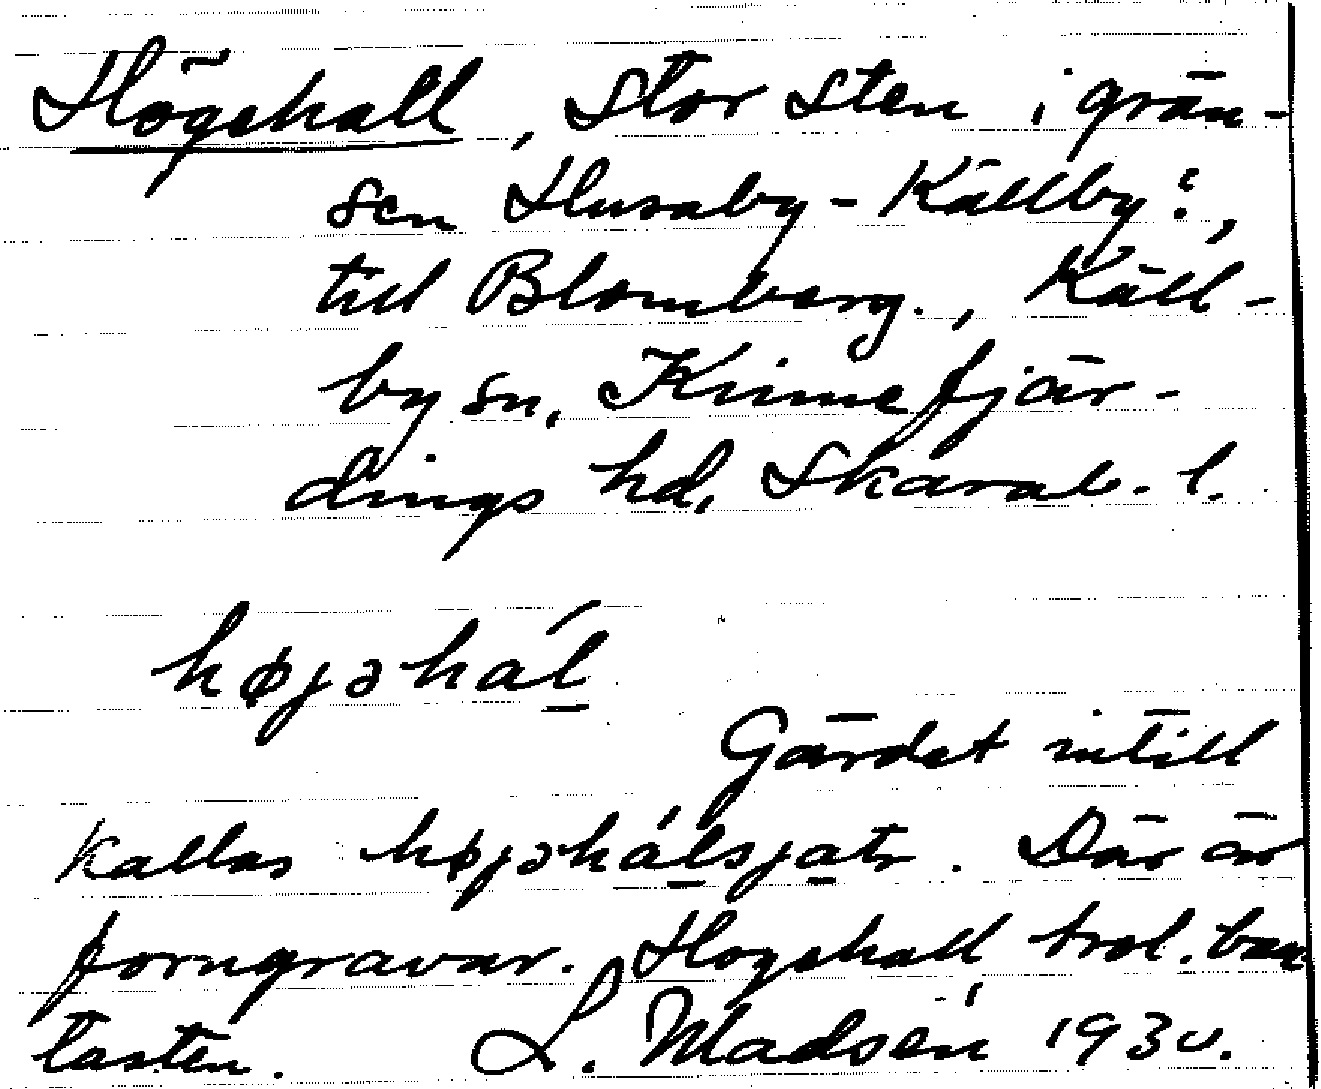 Högehall, stor sten i grän-
sen Husaby-Källby;,
till Blomberg., Käll-
by sn, Kinnefjär-
dings hd, Skarab. l.
højəhál
Gärdet intill
kallas højəhálsjatr. Där är
forngravar. Högehall trol. bau
tasten. L. Madsén 1930.